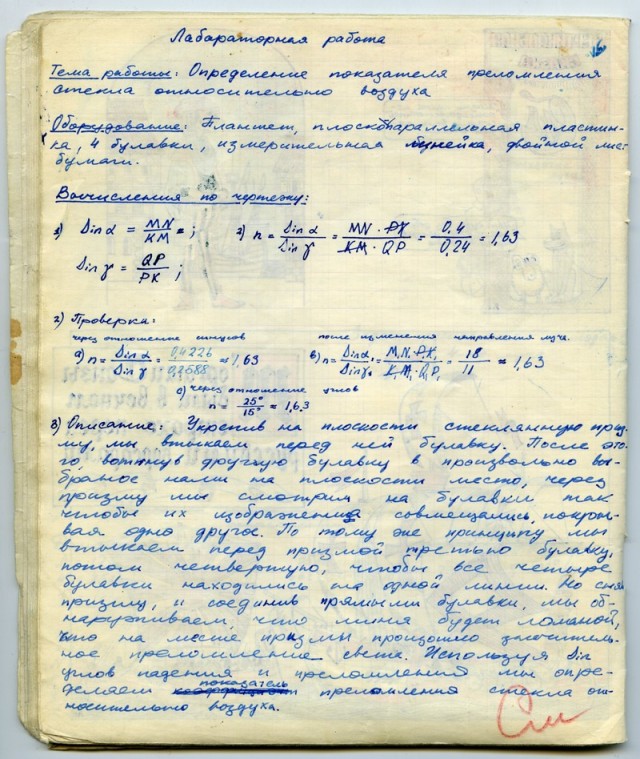 Лабараторная работа
16
Тема работы: Определение показателя преломления
стекла относительно воздуха
Оборудование: Планшет, плоскопараллельная пластин-
ка, 4 булавки, измерительная линейка, двойной лист
бумаги.
Вычисления по чертежу:
1) Sin α = MN/KM = ; 2) n = Sin α/Sin γ = MN · PK/KM · QP = 0,4/0,24 = 1,63
Sin γ = QP/PK ;
2) Проверка:
через отношение синусов после изменения направления луча.
a) n = Sin α/Sin γ = 0,4226/0,2588 = 1,63 b) n = Sin α₁/Sin γ₁ = M₁N₁·P₁K₁/K₁M₁·Q₁P₁ = 18/11 = 1,63
c) через отношение углов
n = 25°/15° = 1,63
3) Описание: Укрепив на плоскости стеклянную приз-
му, мы втыкаем перед ней булавку. После это-
го, воткнув другую булавку в произвольно вы-
браное нами на плоскости место, через
призму мы смотрим на булавки так
чтобы их изображения совмещались, покры-
вая одно другое. По тому же принципу мы
втыкаем перед призмой третью булавку,
потом четвертую, чтобы все четыре
булавки находились на одной линии. Но сняв
призму, и соединив прямыми булавки, мы об-
наруживаем, что линия будет ломаной,
что на месте призмы произошло значитель-
ное преломление света. Используя Sin
углов падения и преломления мы опре-
деляем показатель преломления стекла от-
носительно воздуха.
См